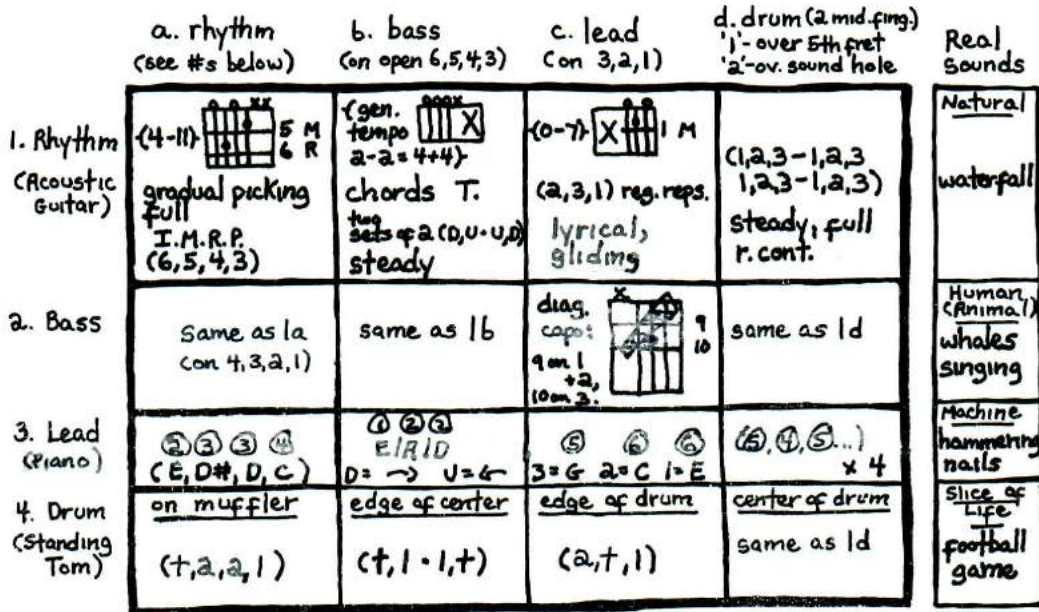 a. rhythm
(see #s below)
b. bass
(on open 6,5,4,3)
c. lead
(on 3,2,1)
d. drum (2 mid. fing.)
'1'-over 5th fret
'2'-ov. sound hole
Real
Sounds
1. Rhythm
(Acoustic
Guitar)
{4-11}
5 M
6 R
gradual picking
full
I.M.R.P.
(6,5,4,3)
{gen.
tempo
2-2=4+4}
X
chords T.
two
sets of 2 (D,U·U,D)
steady
{0-7}
X
1 M
(2,3,1) reg. reps.
lyrical,
gliding
(1,2,3-1,2,3
1,2,3-1,2,3)
steady, full
r. cont.
Natural
waterfall
2. Bass
same as 1a
(on 4,3,2,1)
same as 1b
diag.
capo:
9 on 1
+2,
10 on 3.
x
9
10
same as 1d
Human,
(Animal)
whales
singing
3. Lead
(Piano)
2 3 3 4
(E, D#, D, C)
1 2 2
D= → U= ←
5 6 6
3=G 2=C 1=E
(5, 4, 5...)
x 4
Machine
hammering
nails
4. Drum
(Standing
Tom)
on muffler
(t,2,2,1)
edge of center
(t,1·1,t)
edge of drum
(2,t,1)
center of drum
same as 1d
Slice of
Life
football
game